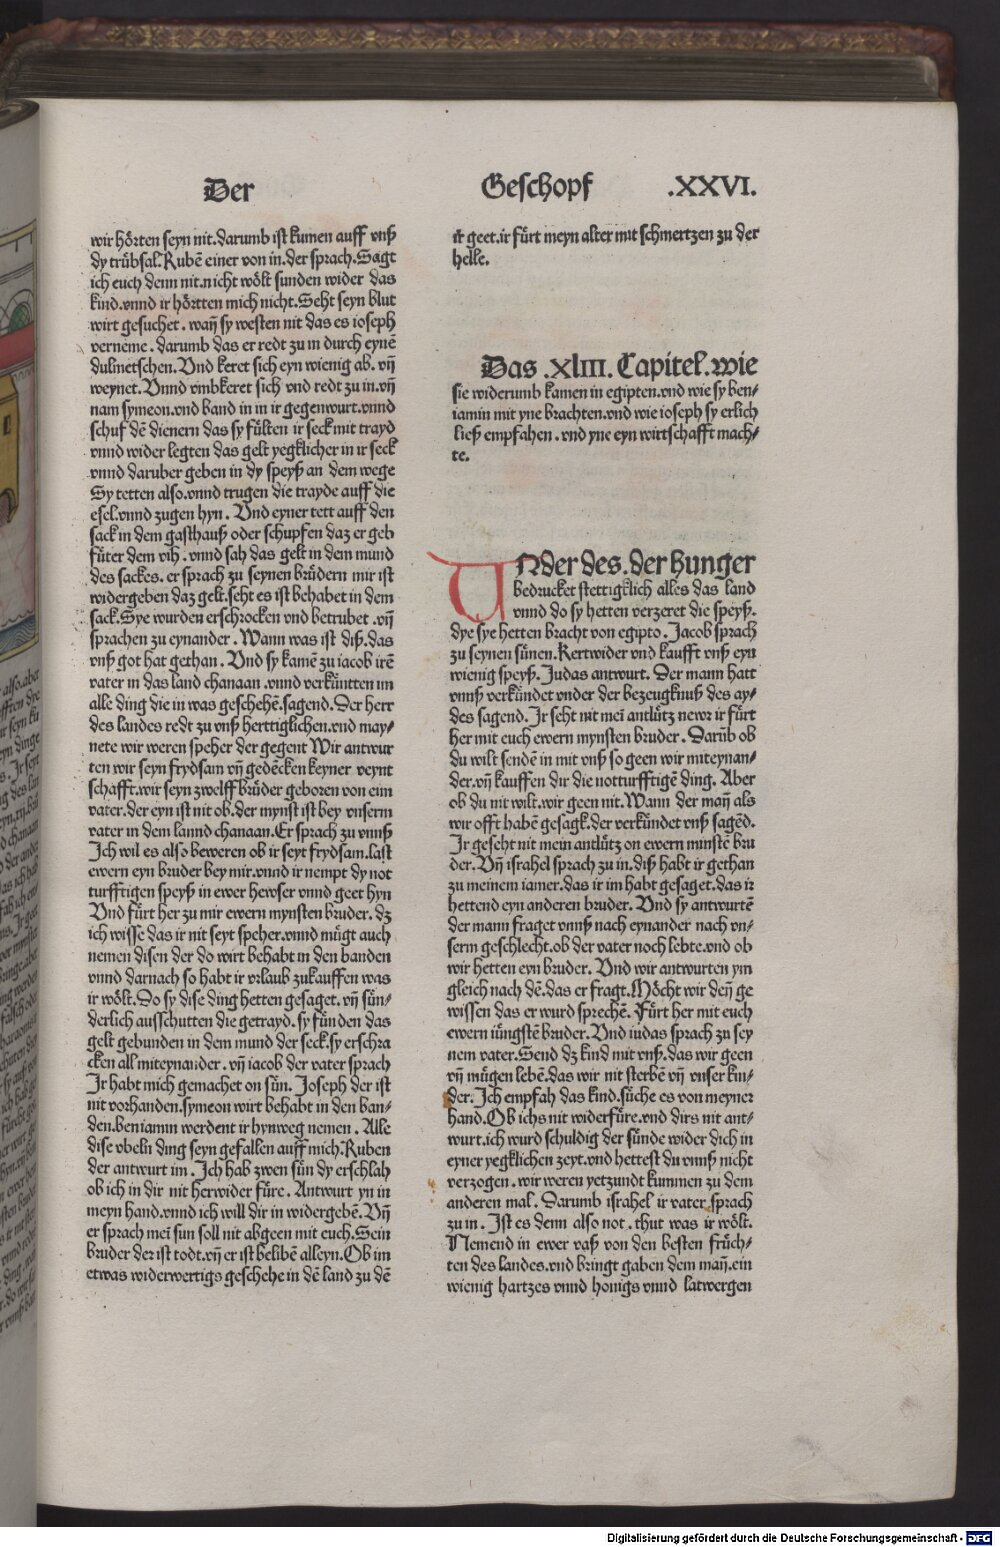 Der
Geschopf .XXVI.
wir hörten seyn nit.darumb ist kumen auff vnß
dy trübsal.Rubē einer von in.der sprach.Sagt
ich euch denn nit.nicht wölt sunden wider das
kind.vnnd ir hörtten mich nicht.Seht seyn blut
wirt gesuchet. wañ sy westen nit das es ioseph
verneme. darumb das er redt zu in durch eynē
dulmetschen. Vnd keret sich eyn wienig ab. vñ
weynet. Vnnd vmbkeret sich vnd redt zu in.vñ
nam symeon.vnd band in in ir gegenwurt.vnnd
schuf dē dienern das sy fülten ir seck mit trayd
vnnd wider legten das gelt yegklicher in ir seck
vnnd daruber geben in dy speyß an dem wege
Sy tetten also.vnnd trugen die trayde auff die
esel.vnnd zugen hyn. Vnd eyner tett auff den
sack in dem gasthauß oder schupfen daz er geb
füter dem vih. vnnd sah das gelt in dem mund
des sackes. er sprach zu seynen brüdern mir ist
widergeben daz gelt.seht es ist behabet in dem
sack.Sye wurden erschrocken vnd betrubet .vñ
sprachen zu eynander. Wann was ist diß.das
vnß got hat gethan. Vnd sy kamē zu iacob irē
vater in das land chanaan .vnnd verküntten im
alle ding die in was geschehē.sagend.Der herr
des landes redt zu vnß herttiglichen.vnd may-
nete wir weren speher der gegent Wir antwur
ten wir seyn frydsam vñ gedēcken keyner veynt
schafft.wir seyn zwelff brüder geboren von eim
vater.der eyn ist nit ob.der mynst ist bey vnserm
vater in dem lannd chanaan.Er sprach zu vnnß
Ich wil es also beweren ob ir seyt frydsam.last
ewern eyn bruder bey mir.vnnd ir nempt dy not
turfftigen speyß in ewer hewser vnnd geet hyn
Vnd fürt her zu mir ewern mynsten bruder. dz
ich wisse das ir nit seyt speher.vnnd mügt auch
nemen disen der do wirt behabt in den banden
vnnd darnach so habt ir vrlaub zukauffen was
ir wölt.Do sy dise ding hetten gesaget. vñ sün-
derlich ausschutten die getrayd.sy fünden das
gelt gebunden in dem mund der seck.sy erschra
cken all miteynander. vñ iacob der vater sprach
Ir habt mich gemachet on sün. Joseph der ist
nit vorhanden.symeon wirt behabt in den ban-
den.beniamin werdent ir hynweg nemen. Alle
dise vbeln ding seyn gefallen auff mich.Ruben
der antwurt im. Ich hab zwen sün dy erschlah
ob ich in dir nit herwider füre. Antwurt yn in
meyn hand.vnnd ich will dir in widergebē. Vñ
er sprach meī sun soll nit abgeen mit euch.Sein
bruder der ist todt.vñ er ist belibē alleyn.Ob im
etwas widerwertigs geschehe in dē land zu dē
ir geet.ir fürt meyn alter mit schmertzen zu der
helle.
Das .XlIII. Capitel.wie
sie widerumb kamen in egipten.vnd wie sy ben-
iamin mit yne brachten.vnd wie ioseph sy erlich
ließ empfahen. vnd yne eyn wirtschafft mach-
te.
VNder des.der hunger
bedrucket stettigklich alles das land
vnnd do sy hetten verzeret die speyß.
dye sye hetten bracht von egipto. Jacob sprach
zu seynen sünen.Kertwider vnd kaufft vnß eyn
wienig speyß. Judas antwurt. Der mann hatt
vnnß verkündet vnder der bezeugknuß des ay-
des sagend. Ir seht nit meī antlütz newr ir fürt
her mit euch ewern mynsten bruder. Darūb ob
du wilt sendē in mit vnß so geen wir miteynan-
der.vñ kauffen dir die notturfftigē ding. Aber
ob du nit wilt.wir geen nit.Wann der mañ als
wir offt habē gesagk.der verkündet vnß sagēd.
Ir geseht nit mein antlütz on ewern minstē bru
der. Vñ israhel sprach zu in.diß habt ir gethan
zu meinem iamer.das ir im habt gesaget.das ir
hettend eyn anderen bruder. Vnd sy antwurtē
der mann fraget vnnß nach eynander nach vn-
sern geschlecht.ob der vater noch lebte.vnd ob
wir hetten eyn bruder. Vnd wir antwurten ym
gleich nach dē.das er fragt.Möcht wir deñ ge
wissen das er wurd sprechē. Fürt her mit euch
ewern iüngstē bruder.Vnd iudas sprach zu sey
nem vater.Send dz kind mit vnß.das wir geen
vñ mügen lebē.das wir nit sterbē vñ vnser kin-
der. Ich empfah das kind.süche es von meyner
hand.Ob ichs nit widerfüre.vnd dirs nit ant-
wurt.ich wurd schuldig der sünde wider dich in
eyner yegklichen zeyt.vnd hettest du vnnß nicht
verzogen.wir weren yetzundt kummen zu dem
anderen mal. Darumb israhel ir vater sprach
zu in. Ist es denn also not. thut was ir wölt.
Nemend in ewer vaß von den besten früch-
ten des landes.vnd bringt gaben dem mañ.ein
wienig hartzes vnnd honigs vnnd latwergen
Digitalisierung gefördert durch die Deutsche Forschungsgemeinschaft - DFG